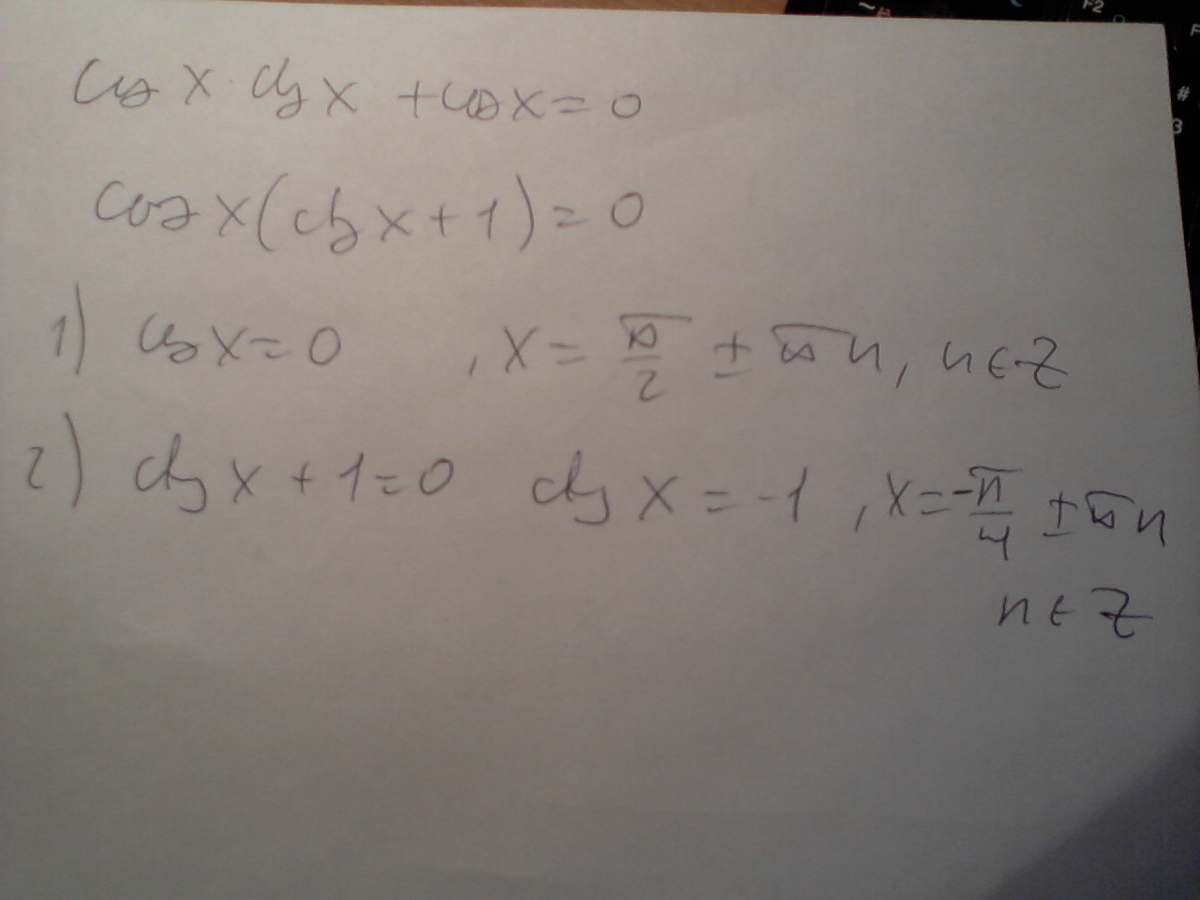 cos x · ctg x + cos x = 0
cos x (ctg x + 1) = 0
1) cos x = 0 , x = π/2 ± πn, n ∈ Z
2) ctg x + 1 = 0 ctg x = -1 , x = -π/4 ± πn
n ∈ Z
F2
#
3